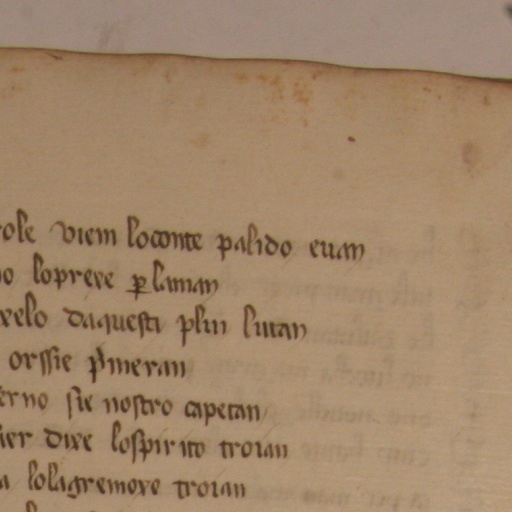 ole viem loconte palido euan
o loprexe p laman
xelo daquesti plui lutan
orssie pmeran
erno sie nostro capetan
ier dixe lospirito troian
a lolagremoxo troian